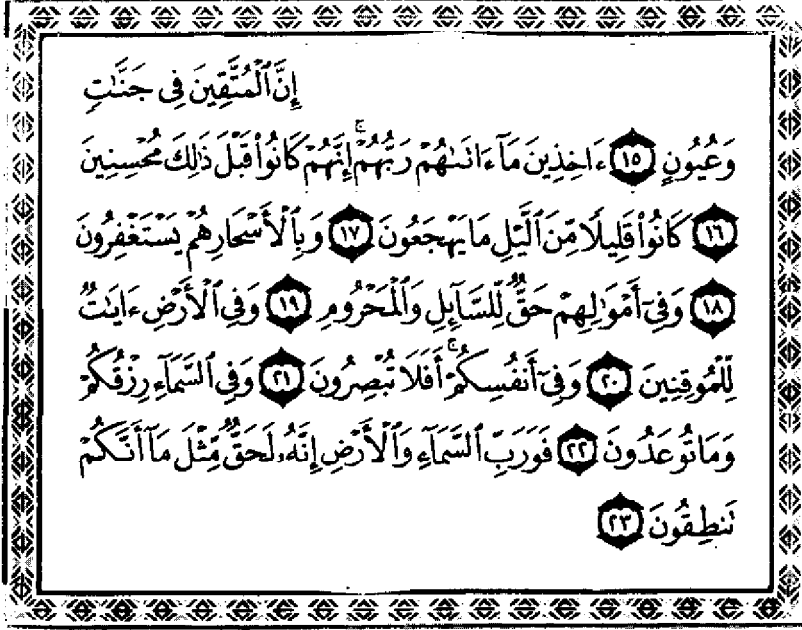 إِنَّ ٱلْمُتَّقِينَ فِى جَنَّـٰتٍ
وَعُيُونٍ ﴿١٥﴾ ءَاخِذِينَ مَآ ءَاتَىٰهُمْ رَبُّهُمْ ۚ إِنَّهُمْ كَانُوا۟ قَبْلَ ذَٰلِكَ مُحْسِنِينَ
﴿١٦﴾ كَانُوا۟ قَلِيلًا مِّنَ ٱلَّيْلِ مَا يَهْجَعُونَ ﴿١٧﴾ وَبِٱلْأَسْحَارِ هُمْ يَسْتَغْفِرُونَ
﴿١٨﴾ وَفِىٓ أَمْوَٰلِهِمْ حَقٌّ لِّلسَّآئِلِ وَٱلْمَحْرُومِ ﴿١٩﴾ وَفِى ٱلْأَرْضِ ءَايَـٰتٌ
لِّلْمُوقِنِينَ ﴿٢٠﴾ وَفِىٓ أَنفُسِكُمْ ۚ أَفَلَا تُبْصِرُونَ ﴿٢١﴾ وَفِى ٱلسَّمَآءِ رِزْقُكُمْ
وَمَا تُوعَدُونَ ﴿٢٢﴾ فَوَرَبِّ ٱلسَّمَآءِ وَٱلْأَرْضِ إِنَّهُۥ لَحَقٌّ مِّثْلَ مَآ أَنَّكُمْ
تَنطِقُونَ ﴿٢٣﴾